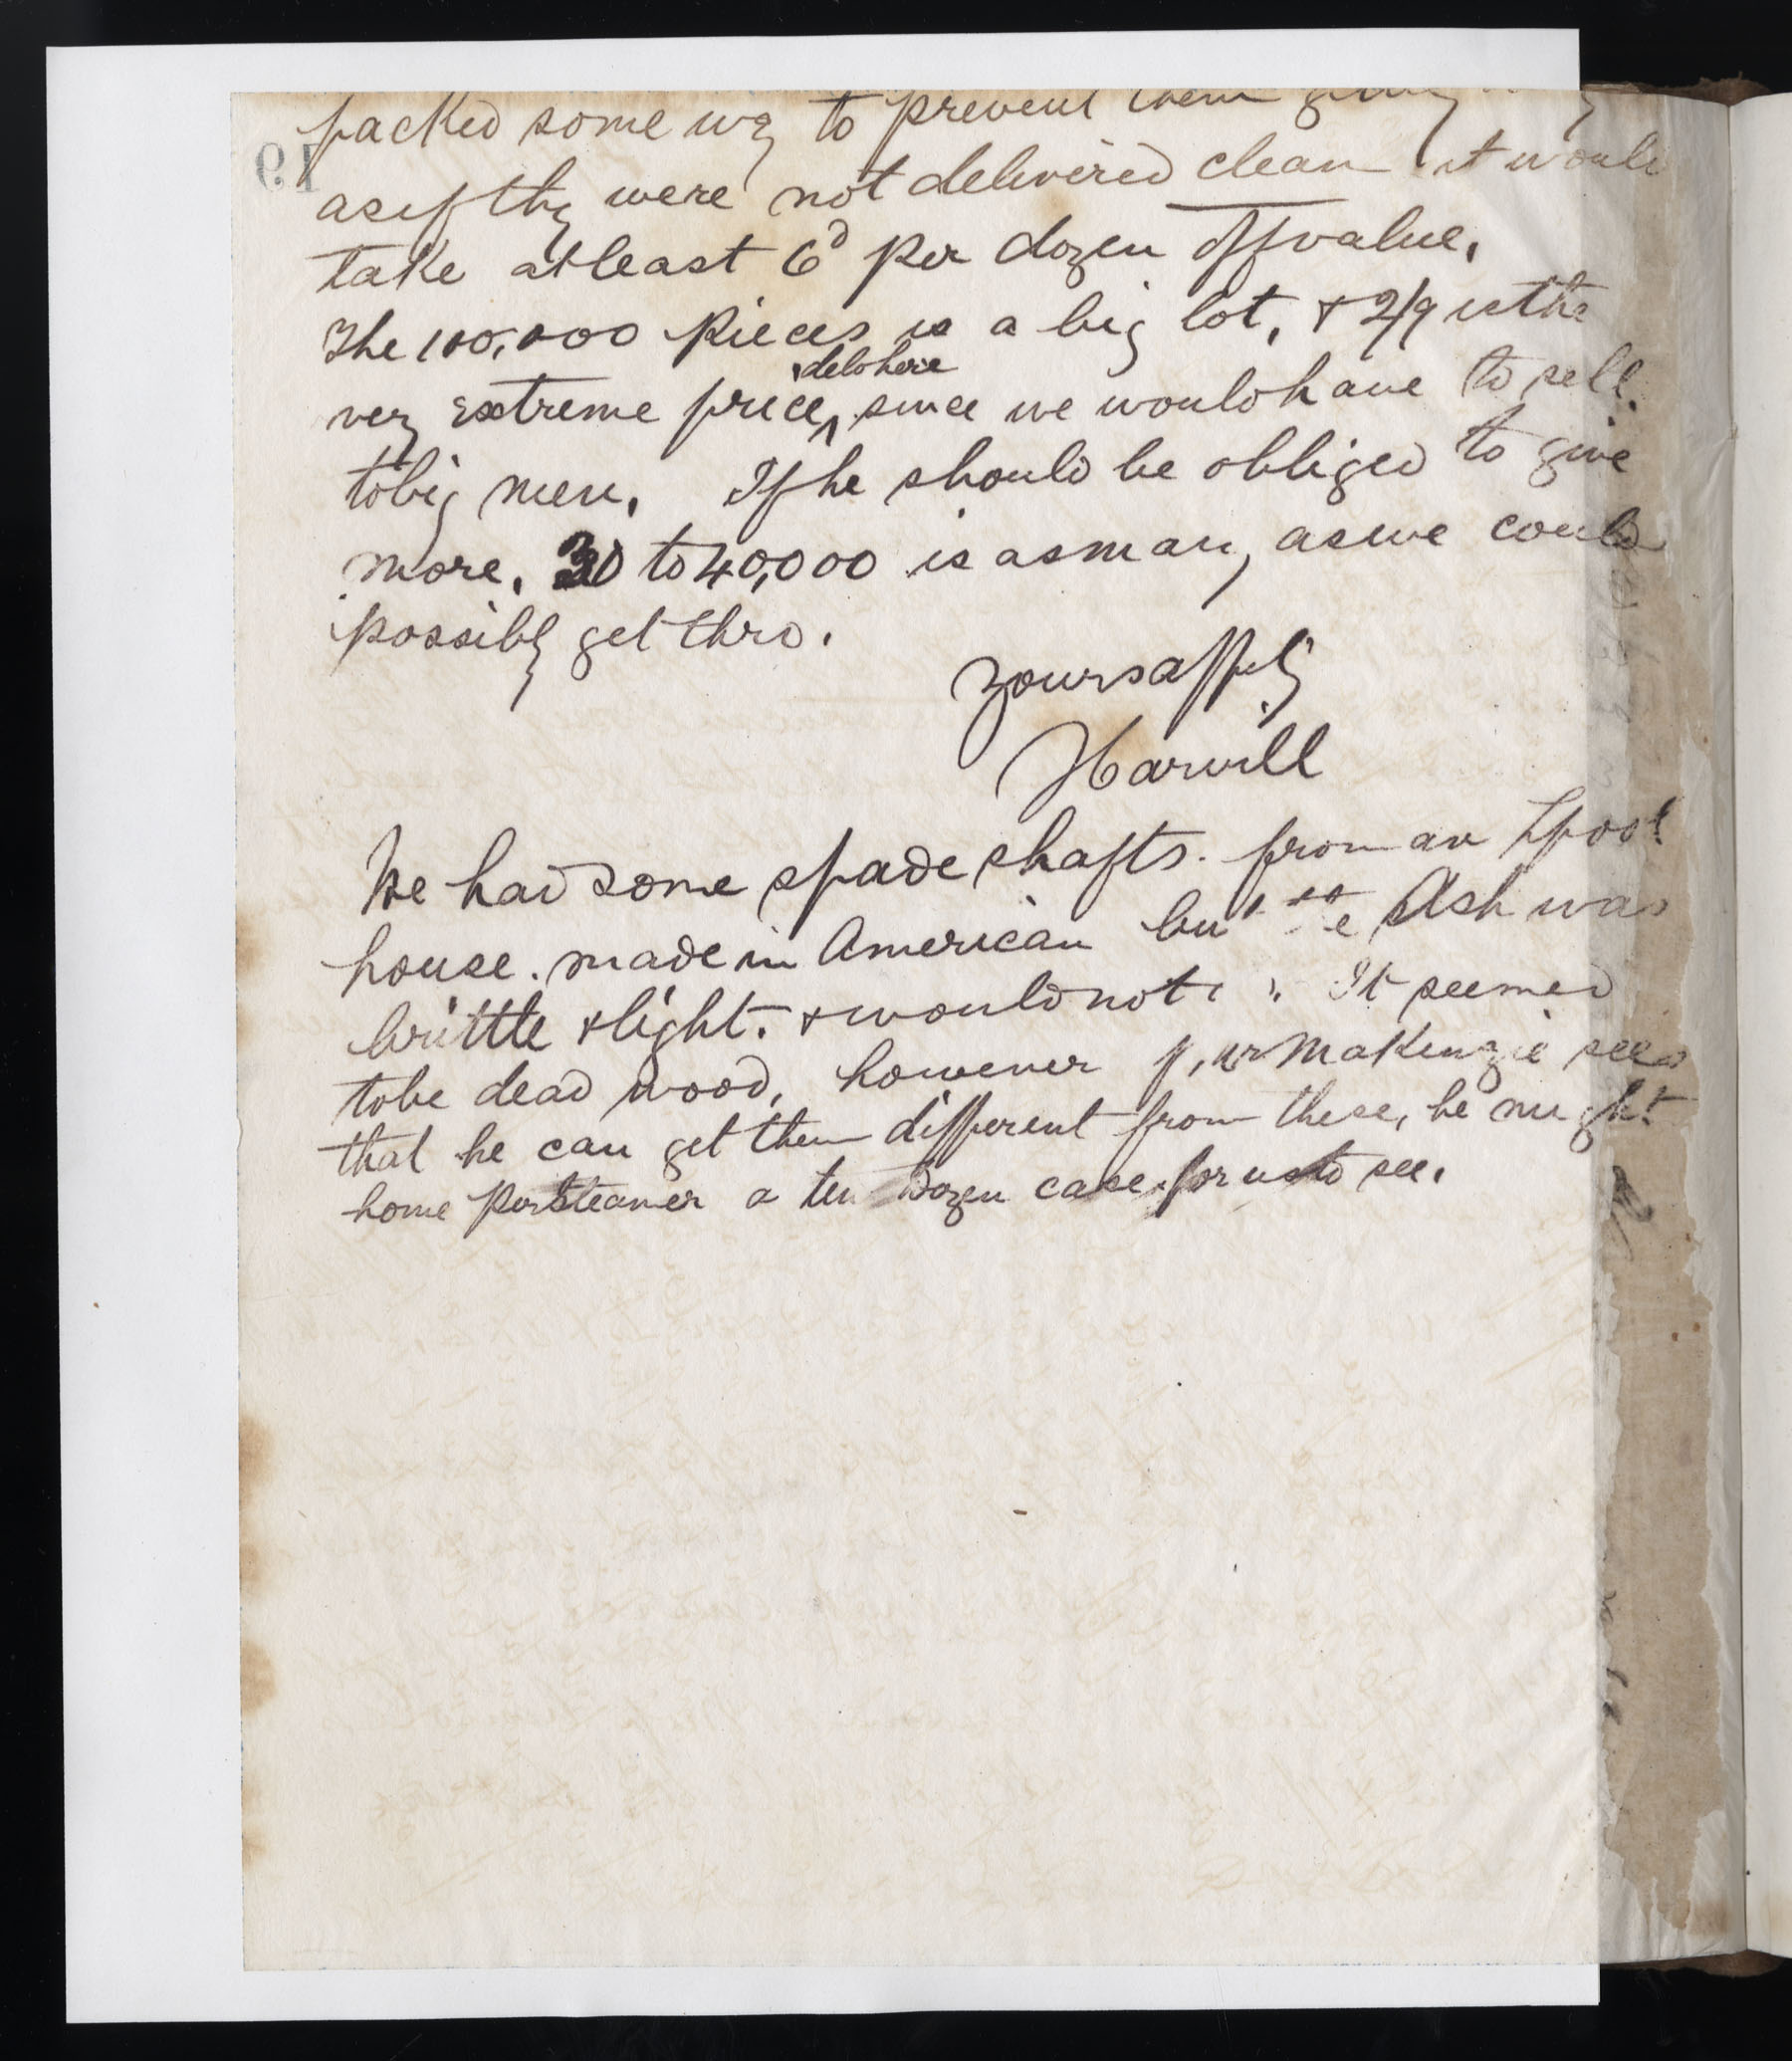 packed some way to prevent them
as if they were not delivered clean it would
take at least 6d per dozen off value.
The 100,000 pieces is a big lot, & 2/9 is the
very extreme price, deld here since we would have to sell.
to big men. If he should be obliged to give
more, 30 to 40,000 is as many as we could
possibly get thro.
Yours affly
Harwill
We had some spade shafts. from an Lpool
house. made in American but Ash was
brittle & light. & would not It seemed
to be dead wood, however Makenzie sees
that he can get them different from these, he might
home per steamer a ten dozen case for us to see.